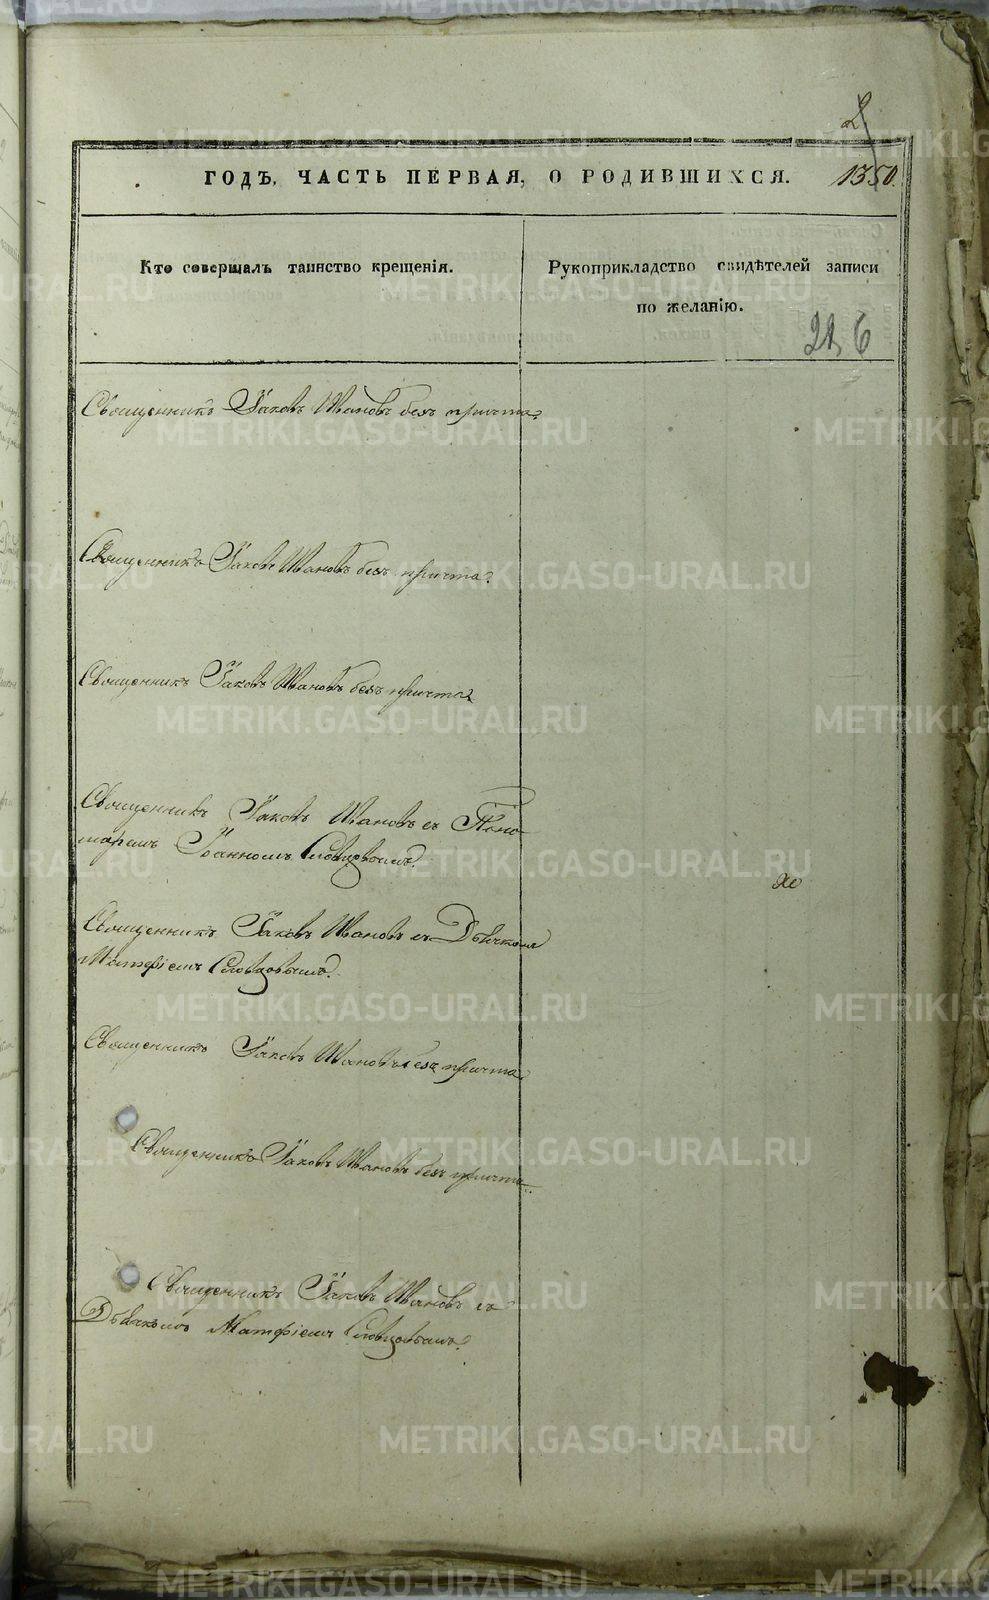 2
ГОДЪ, ЧАСТЬ ПЕРВАЯ, О РОДИВШИХСЯ. 1350.
Кто совершалъ таинство крещенія.
Рукоприкладство свидѣтелей записи
по желанію.
21, 6
Священникъ Іаковъ Ивановъ безъ причта.
Священникъ Іаковъ Ивановъ безъ причта.
Священникъ Іаковъ Ивановъ безъ причта.
Священникъ Іаковъ Ивановъ съ Поно-
маремъ Іоанномъ Словцовымъ.
Священникъ Іаковъ Ивановъ съ Дьячкомъ
Матфіемъ Словцовымъ.
Священникъ Іаковъ Ивановъ безъ причта.
Священникъ Іаковъ Ивановъ безъ причта.
Священникъ Іаковъ Ивановъ съ
Дьячкомъ Матфіемъ Словцовымъ.
METRIKI.GASO-URAL.RU